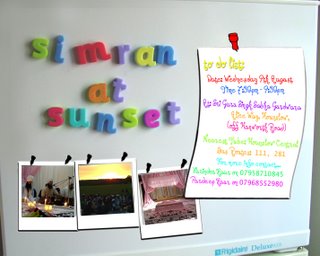 simran
at
sunset
to do list:
Date: Wednesday 9th August
Time: 7.30pm - 9.30pm
At: Sri Guru Singh Sabha Gurdwara
Alice Way, Hounslow,
(off Hanworth Road)
Nearest Tube: Hounslow Central
Bus Routes 111, 281
For more info contact:
Kaur on 07958710845
Pardeep Kaur on 07968552980
Frigidaire
Deluxe